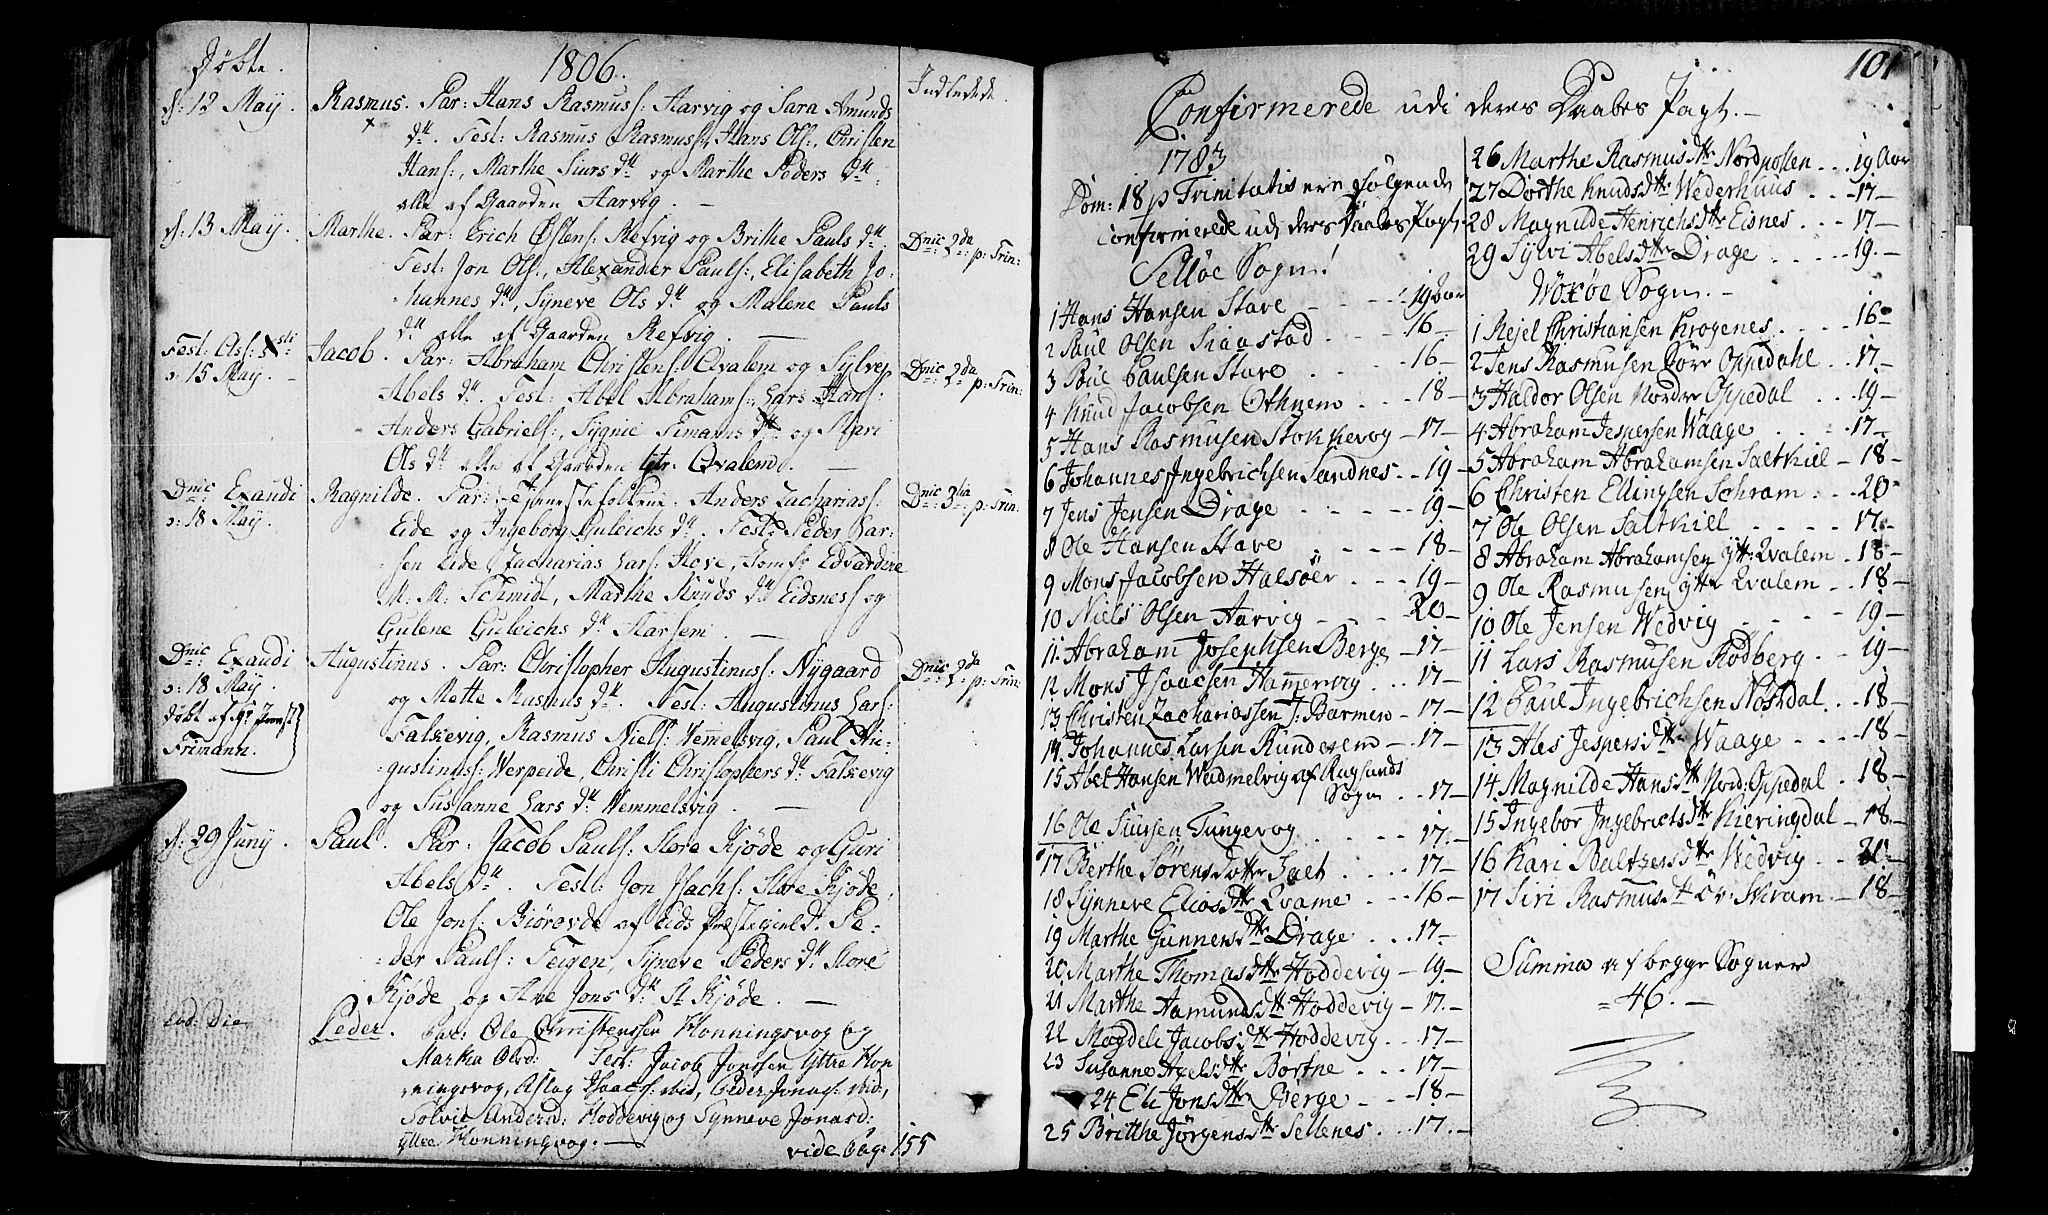 Døbte.
1806.
Indledede.
d: 12 May.
Rasmus. Par: Hans Rasmuss: Aarvig og Sara Amunds
dtt. Test: Rasmus Rasmuss:, Hans Ols:, Christen
Hans:, Marthe Siurs dtt og Marthe Peders dtt
alle af Gaarden Aarvig. —
d: 13 May.
Marthe. Par: Erich Østens: Refvig og Brithe Pauls dtt.
Dnic: 2da p: Trin:
Test: Jon Ols:, Alexander Pauls:, Elisabeth Jo-
hannes dtt, Syneve Ols dtt og Malene Pauls
dtt alle af Gaarden Refvig. —
Fest: Asc: Xsti
ɔ: 15 May. —
Jacob. Par: Abraham Christens: Qvalem og Sylvey
Dnic: 2da p: Trin:
Abels dtt. Test: Abel Abrahams:, Lars Hans:
Anders Gabriels:, Sygnie Timans dtt og Mari
Ols dtt alle af Gaarden Qvalem. —
Dnic: Exaudi
ɔ: 18 May.
Ragnilde. Par: Tjenestefolkene Anders Zacharias:
Dnic: 3tia p: Trin:
Eide og Ingeborg Guleichs dtt. Test: Peder Lar-
sen Eide, Zacharias Lars: Hove, Jomfr: Edvardine
M: M: Schmidt, Marthe Knuds dtt Eidsnes og
Gulene Guleichs dtt Aarsem. —
Dnic: Exaudi
ɔ: 18 May.
døbt af Hr Præst
Frimann.
Augustinus. Par: Christopher Augustinus: Nygaard
Dnic: 2da p: Trin:
og Mette Rasmus dtt. Test: Augustinus Lars:
Falkevig, Rasmus Niels: Vemmelsvig, Paul Au-
gustinus: Werpeide, Christi Christophers dtt Falkevig
og Susanne Lars dtt Vemmelsvig. —
d: 29 Juny.
Paul. Par: Jacob Pauls: Store Kjøde og Guri
Abels dtt. Test: Jon Isachs: Store Kjøde,
Ole Jons: Biørovde af Eids Præstegield. Pe-
der Pauls: Teigen, Syneve Peders dtt Store
Kjøde og Ane Jons dtt St Kjøde. —
Eod: Die
Peder. Par: Ole Christenssen Honningsvog og
Marka Olsd: Test: Jacob Jonssen Yttre Hon
ningsvog, Aslag Isaacs: ibid, Peder Jonas: ibid,
Sølvie Andersd: Hoddevig og Synneve Jonasd:
Yttre Honningvog. —
vide Pag: 155
101
Confirmerede udi deres Daabes Pagt. —
1783
Dom: 18 p Trinitatis ere følgende
Confirmerede udi deres Daabes Pagt.
Selløe Sogn!
1 Hans Hansen Stave — 19 Aar
2 Paul Olsen Staastad — 16 —
3 Poul Paulsen Stave — 16 —
4 Knud Jacobsen Othnem — 18 —
5 Hans Rasmusen Stokkevog — 17 —
6 Johannes Ingebrichsen Sandnes — 19 —
7 Jens Jensen Drage — 19 —
8 Ole Hansen Stave — 18 —
9 Mons Jacobsen Halsöer — 19 —
10 Niels Olsen Aarvig — 20 —
11. Abraham Josephsen Berge — 17 —
12 Mons Isaacsen Hammervig — 17 —
13 Christen Zachariassen J: Barmen — 17 —
14 Johannes Larsen Runderem — 17 —
15 Abel Hansen Wedmelvig af Rugsunds
Sogn — 17 —
16 Ole Siursen Tungevog — 17 —
17 Berthe Sørensdotter Salt — 17 —
18 Synneve Elias dtr Qvame — 16 —
19 Marthe Gunners dtr Drage — 17 —
20 Marthe Thomas dtr Hoddevig — 19 —
21 Marthe Aamunds dtr Hoddevig — 17 —
22 Magdeli Jacobs dtr Hoddevig — 17 —
23 Susanne Axels dtr Børtne — 17 —
24 Eli Jons dtr Berge — 18 —
25 Britthe Jørgens dtr Sellenes — 17 —
26 Marthe Rasmus dtr Nordpollen — 19 Aar
27 Dorthe Knuds dtr Wederhuus — 17 —
28 Magnilde Henrichs dtr Eisnes — 17 —
29 Sylvi Abels dtr Drage — 19 —
Woxöe Sogn. —
1 Rejel Christiansen Krogenes — 16 —
2 Jens Rasmusen Sörr Oppedahl — 17 —
3 Haldor Olsen Nordre Oppedal — 19 —
4 Abraham Jespersen Waage — 17 —
5 Abraham Abrahamsen Saltkiel — 18 —
6 Christen Ellingsen Schram — 20 —
7 Ole Olsen Saltkiell — 17 —
8 Abraham Abrahamsen Ytt: Qvalem — 18 —
9 Ole Rasmusen Yttr Qvalem — 18 —
10 Ole Jensen Wedvig — 19 —
11 Lars Rasmusen Rödberg — 19 —
12 Paul Ingebrichsen Nosdal — 18 —
13 Ales Jespers dtr Waage — 18 —
14 Magnilde Hans dtr Nord: Oppedal — 18 —
15 Ingebor Ingebricts dtr Kieringdal — 18 —
16 Kari Baltzers dtr Wedvig — 20 —
17 Siri Rasmus dtr Öv: Skram — 18 —
Summa af begge Sogner
= 46. —